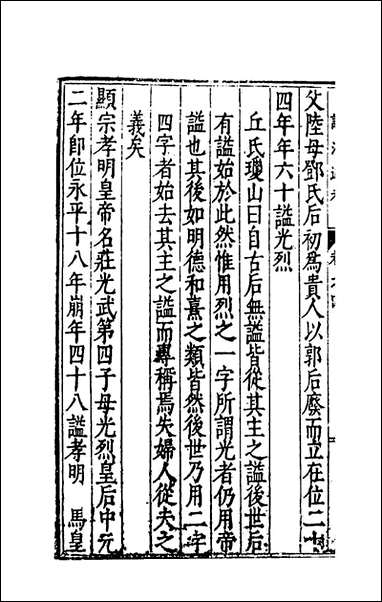 父陸母鄧氏后初爲貴人以郭后廢而立在位二十
四年年六十謚光烈
丘氏瓊山曰自古后無謚皆從其主之謚後世后
有謚始於此然惟用烈之一字所謂光者仍用帝
謚也其後如明德和熹之類皆然後世乃用二字
四字者始去其主之謚而專稱焉失婦人從夫之
義矣
顯宗孝明皇帝名莊光武第四子母光烈皇后中元
二年即位永平十八年崩年四十八謚孝明 馬皇